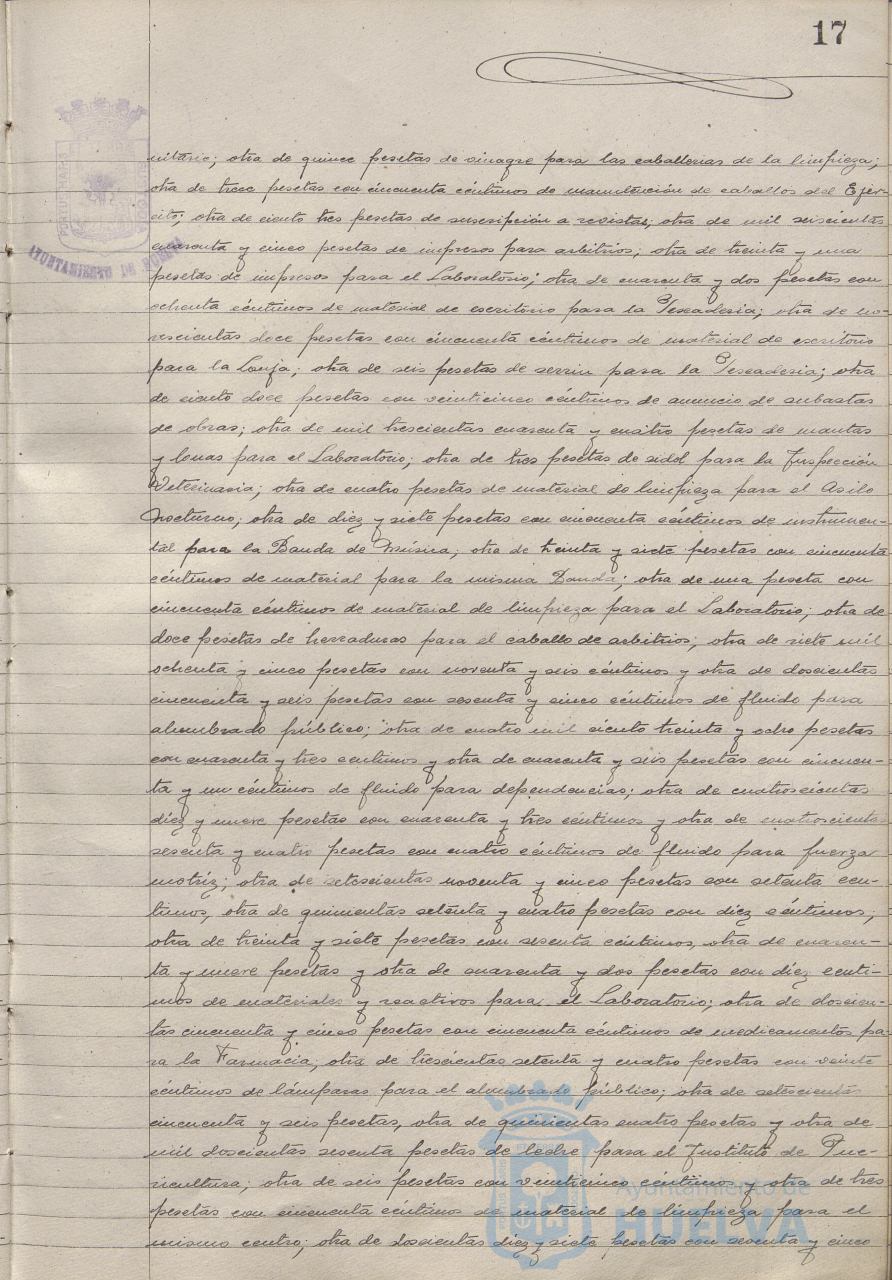 17
AYUNTAMIENTO DE HUELVA
nitario; otra de quince pesetas de vinagre para las caballerias de la limpieza;
otra de trece pesetas con cincuenta céntimos de manutención de caballos del Ejér-
cito; otra de ciento tres pesetas de suscripción a revistas; otra de mil seiscientas
cuarenta y cinco pesetas de impresos para arbitrios; otra de treinta y una
pesetas de impresos para el Laboratorio; otra de cuarenta y dos pesetas con
ochenta céntimos de material de escritorio para la Pescaderia; otra de no-
vescientas doce pesetas con cincuenta céntimos de material de escritorio
para la Lonja; otra de seis pesetas de serrin para la Pescaderia; otra
de ciento doce pesetas con veinticinco céntimos de anuncio de subastas
de obras; otra de mil trescientas cuarenta y cuatro pesetas de mantas
y lonas para el Laboratorio; otra de tres pesetas de sidol para la Inspección
Veterinaria; otra de cuatro pesetas de material de limpieza para el Asilo
Nocturno; otra de diez y siete pesetas con cincuenta céntimos de instrumen-
tal para la Banda de Música; otra de treinta y siete pesetas con cincuenta
céntimos de material para la misma Banda; otra de una peseta con
cincuenta céntimos de material de limpieza para el Laboratorio; otra de
doce pesetas de herraduras para el caballo de arbitrios; otra de siete mil
ochenta y cinco pesetas con noventa y seis céntimos y otra de doscientas
cincuenta y seis pesetas con sesenta y cinco céntimos de fluido para
alumbrado público; otra de cuatro mil ciento treinta y ocho pesetas
con cuarenta y tres centimos y otra de cuarenta y seis pesetas con cincuen-
ta y un céntimos de fluido para dependencias; otra de cuatroscientas
diez y nueve pesetas con cuarenta y tres céntimos y otra de cuatroscientas
sesenta y cuatro pesetas con cuatro céntimos de fluido para fuerza
motriz; otra de setescientas noventa y cinco pesetas con setenta cén-
timos, otra de quinientas setenta y cuatro pesetas con diez céntimos;
otra de treinta y siete pesetas con sesenta céntimos, otra de cuaren-
ta y nueve pesetas y otra de cuarenta y dos pesetas con diez centi-
mos de materiales y reactivos para el Laboratorio; otra de doscien-
tas cincuenta y cinco pesetas con cincuenta céntimos de medicamentos pa-
ra la Farmacia; otra de trescientas setenta y cuatro pesetas con veinte
céntimos de lámparas para el alumbrado público; otra de setescientas
cincuenta y seis pesetas, otra de quinientas cuatro pesetas y otra de
mil doscientas sesenta pesetas de leche para el Instituto de Pue-
ricultura; otra de seis pesetas con veinticinco céntimos y otra de tres
pesetas con cincuenta céntimos de material de limpieza para el
mismo centro; otra de doscientas diez y siete pesetas con sesenta y cinco
Ayuntamiento de
HUELVA